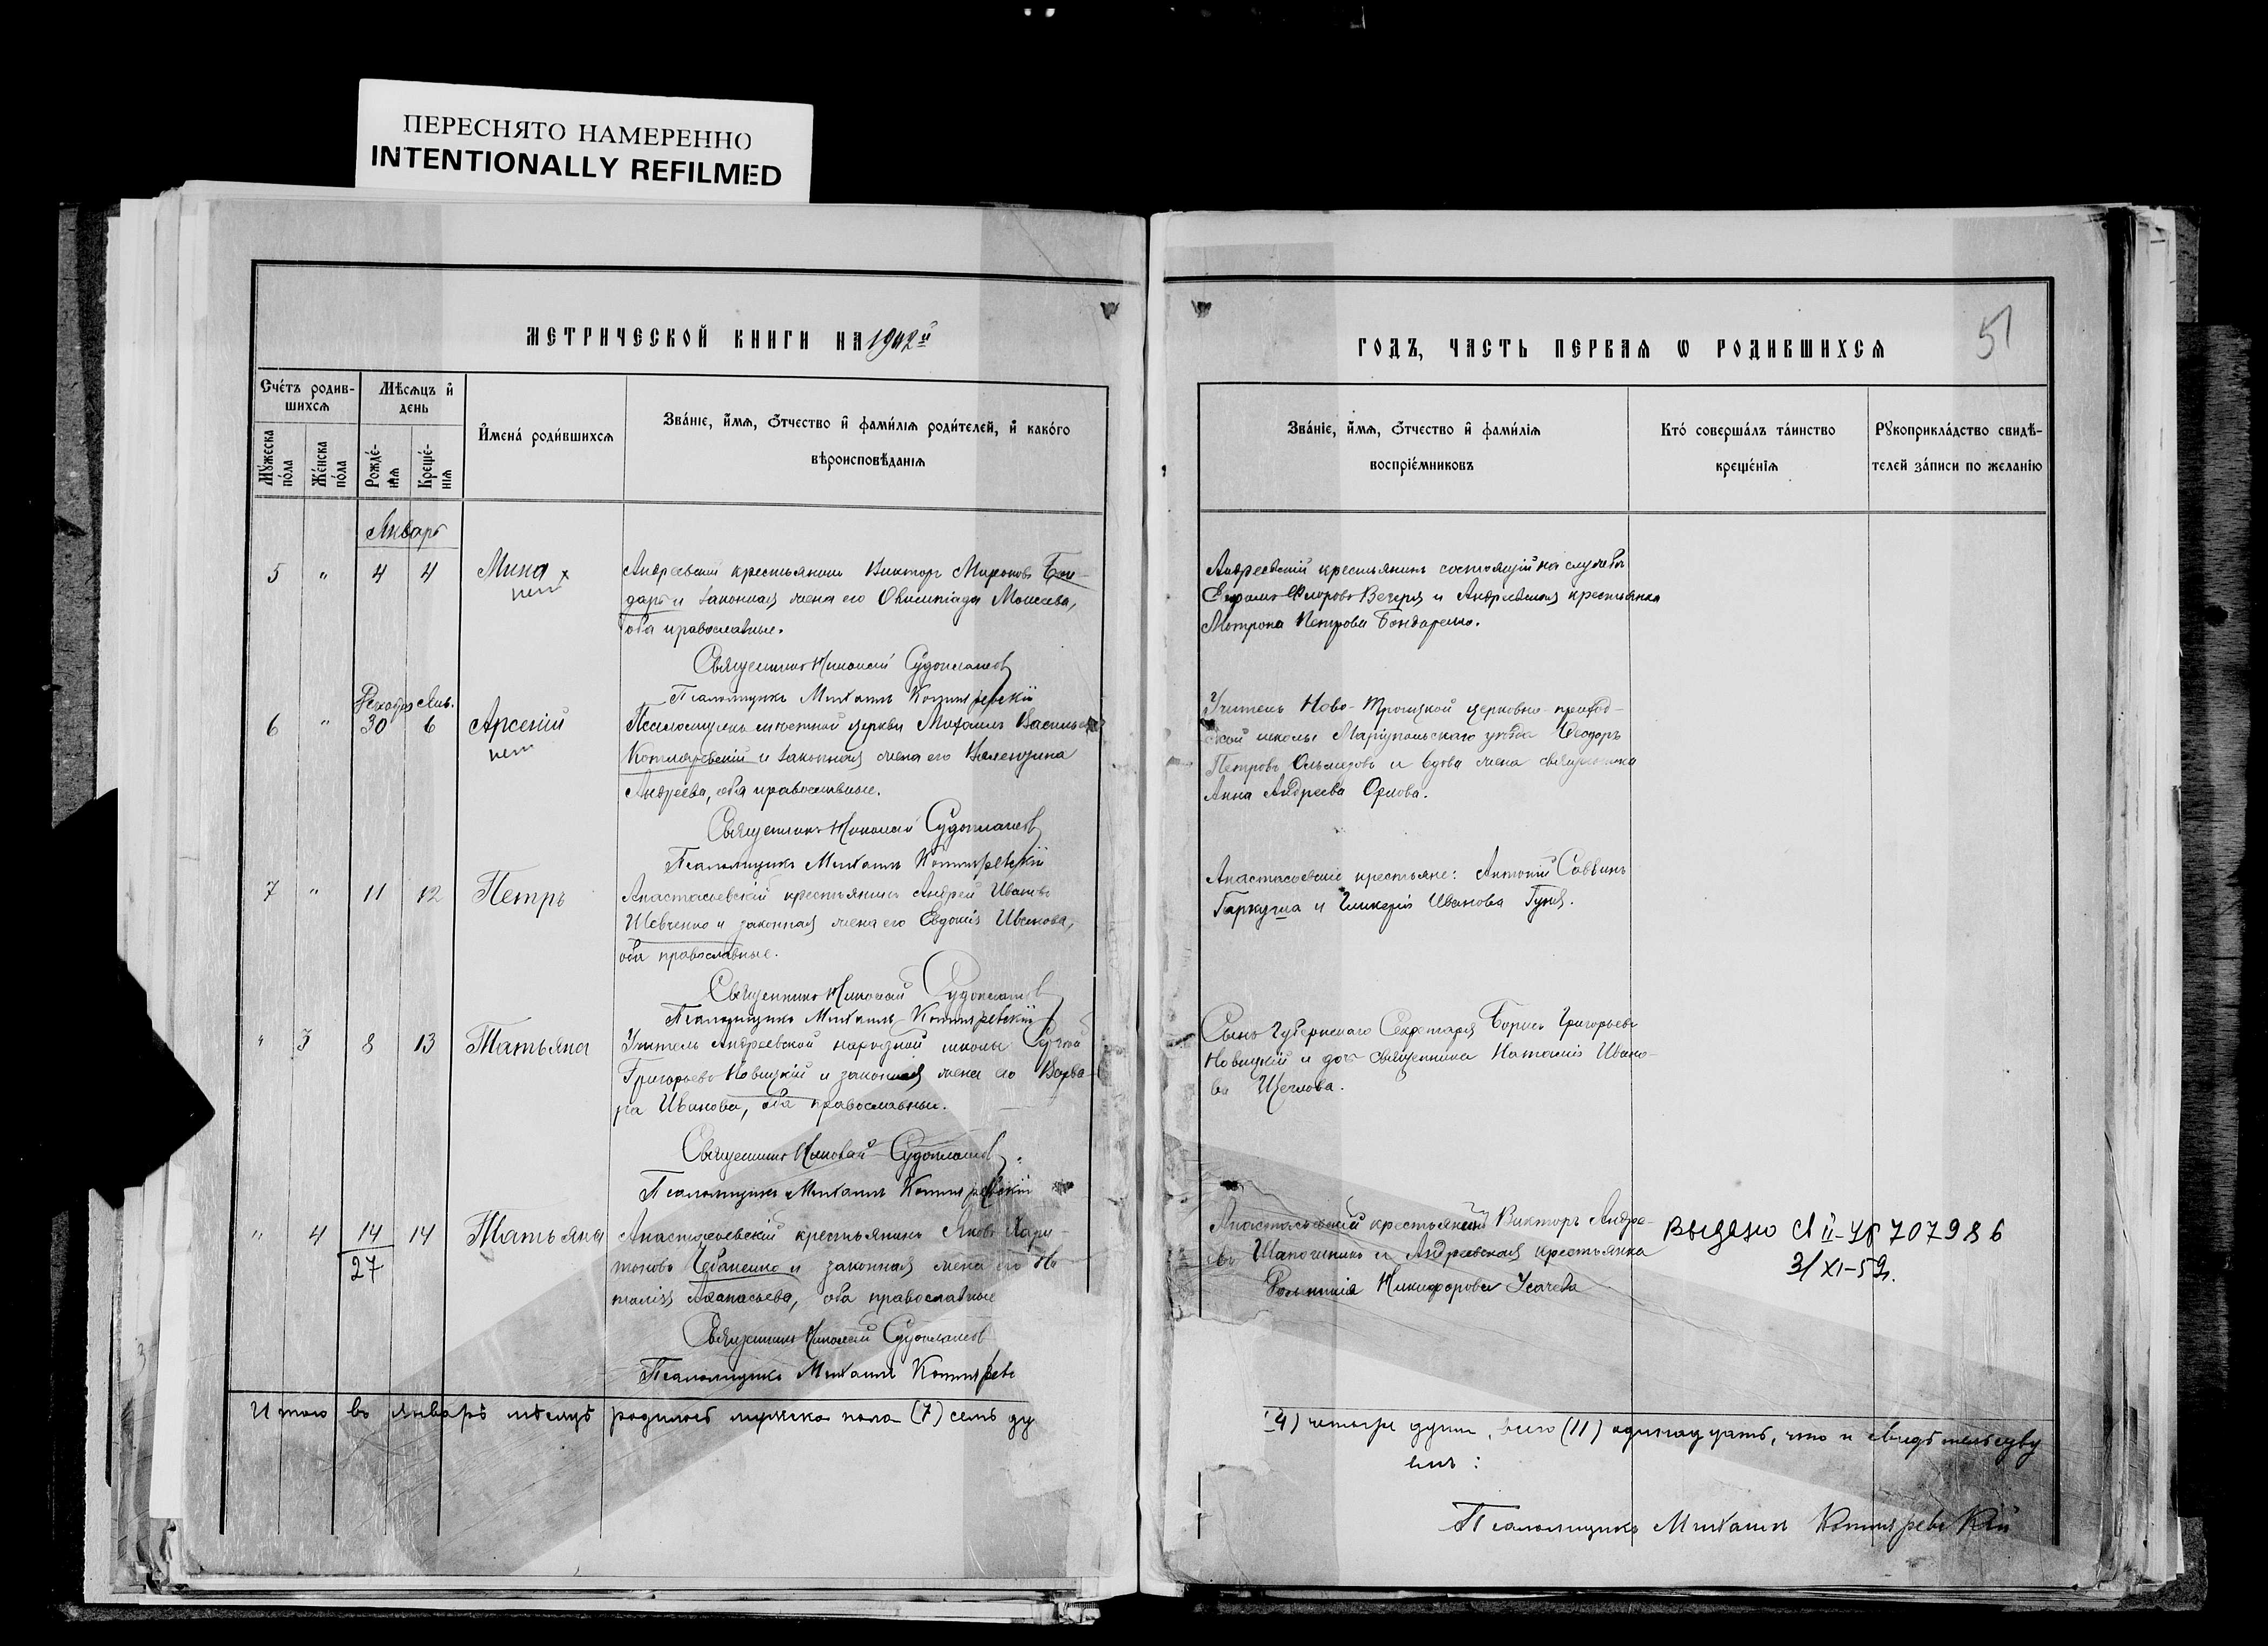 ПЕРЕСНЯТО НАМЕРЕННО
INTENTIONALLY REFILMED
МЕТРИЧЕСКОЙ КНИГИ НА 1902й
Счетъ родив-
шихся
Мѣсяцъ и
день
Мужеска
пола
Женска
пола
Рожде-
нія
Креще-
нія
Имена родившихся
Званіе, имя, отчество и фамилія родителей, и какого
вѣроисповѣданія
Январь
5 " 4 4 Мина
нет
Андреевскій крестьянинъ Викторъ Мироновъ Бон-
дарь и законная жена его Олимпіада Моисеева,
оба православные.
Священникъ Николай Судоплатов
Псаломщикъ Михаилъ Котляревскій
Декабрь Янв.
6 " 30 6 Арсеній
нет
Псаломщикъ мѣстной церкви Михаилъ Васильевъ
Котляревскій и законная жена его Валентина
Андреева, оба православные.
Священникъ Николай Судоплатов
Псаломщикъ Михаилъ Котляревскій
7 " 11 12 Петръ
Анастасьевскій крестьянинъ Андрей Ивановъ
Шевченко и законная жена его Евдокія Иванова,
оба православные.
Священникъ Николай Судоплатов
Псаломщикъ Михаилъ Котляревскій
" 3 8 13 Татьяна
Учитель Андреевской народной школы Сергѣй
Григорьевъ Новицкій и законная жена его Варва-
ра Иванова, оба православные.
Священникъ Николай Судоплатов
Псаломщикъ Михаилъ Котляревскій
" 4 14 14 Татьяна
27
Анастасьевскій крестьянинъ Яковъ Хари-
тоновъ Чебаненко и законная жена его На-
талія Аѳанасьева, оба православные
Священникъ Николай Судоплатов
Псаломщикъ Михаилъ Котляревс
Итого въ январѣ мѣсяцѣ родилось мужска пола (7) семь ду
ГОДЪ, ЧАСТЬ ПЕРВАЯ Ѡ РОДИВШИХСЯ
51
Званіе, имя, отчество и фамилія
воспріемниковъ
Кто совершалъ таинство
крещенія
Рукоприкладство свидѣ-
телей записи по желанію
Андреевскій крестьянинъ состоящій на службѣ
Флоровъ Вечеря и Андреевская крестьянка
Мотрона Петрова Бондаренко.
Учитель Ново-Троицкой церковно-приход-
ской школы Маріупольскаго уѣзда Ѳеодоръ
Петровъ и вдова жена священника
Анна Андреева Орлова.
Анастасьевскіе крестьяне: Антоній Саввинъ
Гаркуша и Гликерія Иванова Гуня.
Сынъ Губернскаго Секретаря Борисъ Григорьевъ
Новицкій и дочь священника Наталія Ивано-
ва Щеглова.
Анастасьевскій крестьянинъ Викторъ Андре-
евъ Шапошникъ и Андреевская крестьянка
Никифорова Усачева
Выдано II-УР 707986
3/XI-59г.
(4) четыре души, всего (11) одинадцать, что и свидѣтельству
емъ:
Псаломщикъ Михаилъ Котляревскій